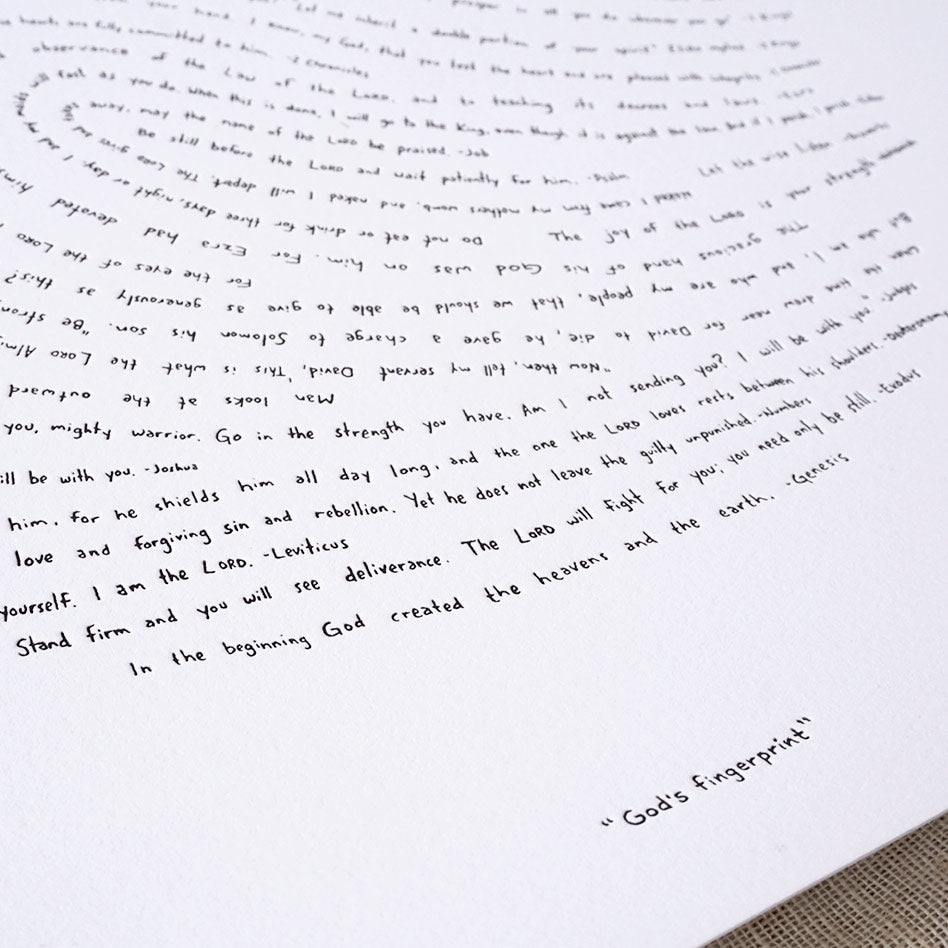 hearts are fully committed to him. -2 Chronicles
observance of the Law of the LORD, and to teaching its decrees and laws.
fast as you do. When this is done, I will go to the King, even though it is against the law. And if I perish, I perish.
away. may the name of the LORD be praised. -Job
Be still before the LORD and wait patiently for him. -Psalm
Let the wise listen
naked I came from my mothers womb, and naked I will depart. The LORD gives
Do not eat or drink for three days, night or day. I and my maids will
The joy of the LORD is your strength
The gracious hand of his God was on him. For Ezra had devoted
For the eyes of the LORD
But who am I, and who are my people, that we should be able to give as generously as this?
When the time drew near for David to die, he gave a charge to Solomon his son. "Be strong
"Now then, tell my servant David, 'This is what the LORD
Man looks at the outward
you, mighty warrior. Go in the strength you have. Am I not sending you? I will be with you." -Judges
ill be with you. -Joshua
him, for he shields him all day long, and the one the LORD loves rests between his shoulders. -Deuteronomy
love and forgiving sin and rebellion. Yet he does not leave the guilty unpunished. -Numbers
yourself. I am the LORD. -Leviticus
Stand firm and you will see deliverance. The LORD will fight for you; you need only be still. -Exodus
In the beginning God created the heavens and the earth. -Genesis
"God's fingerprint"